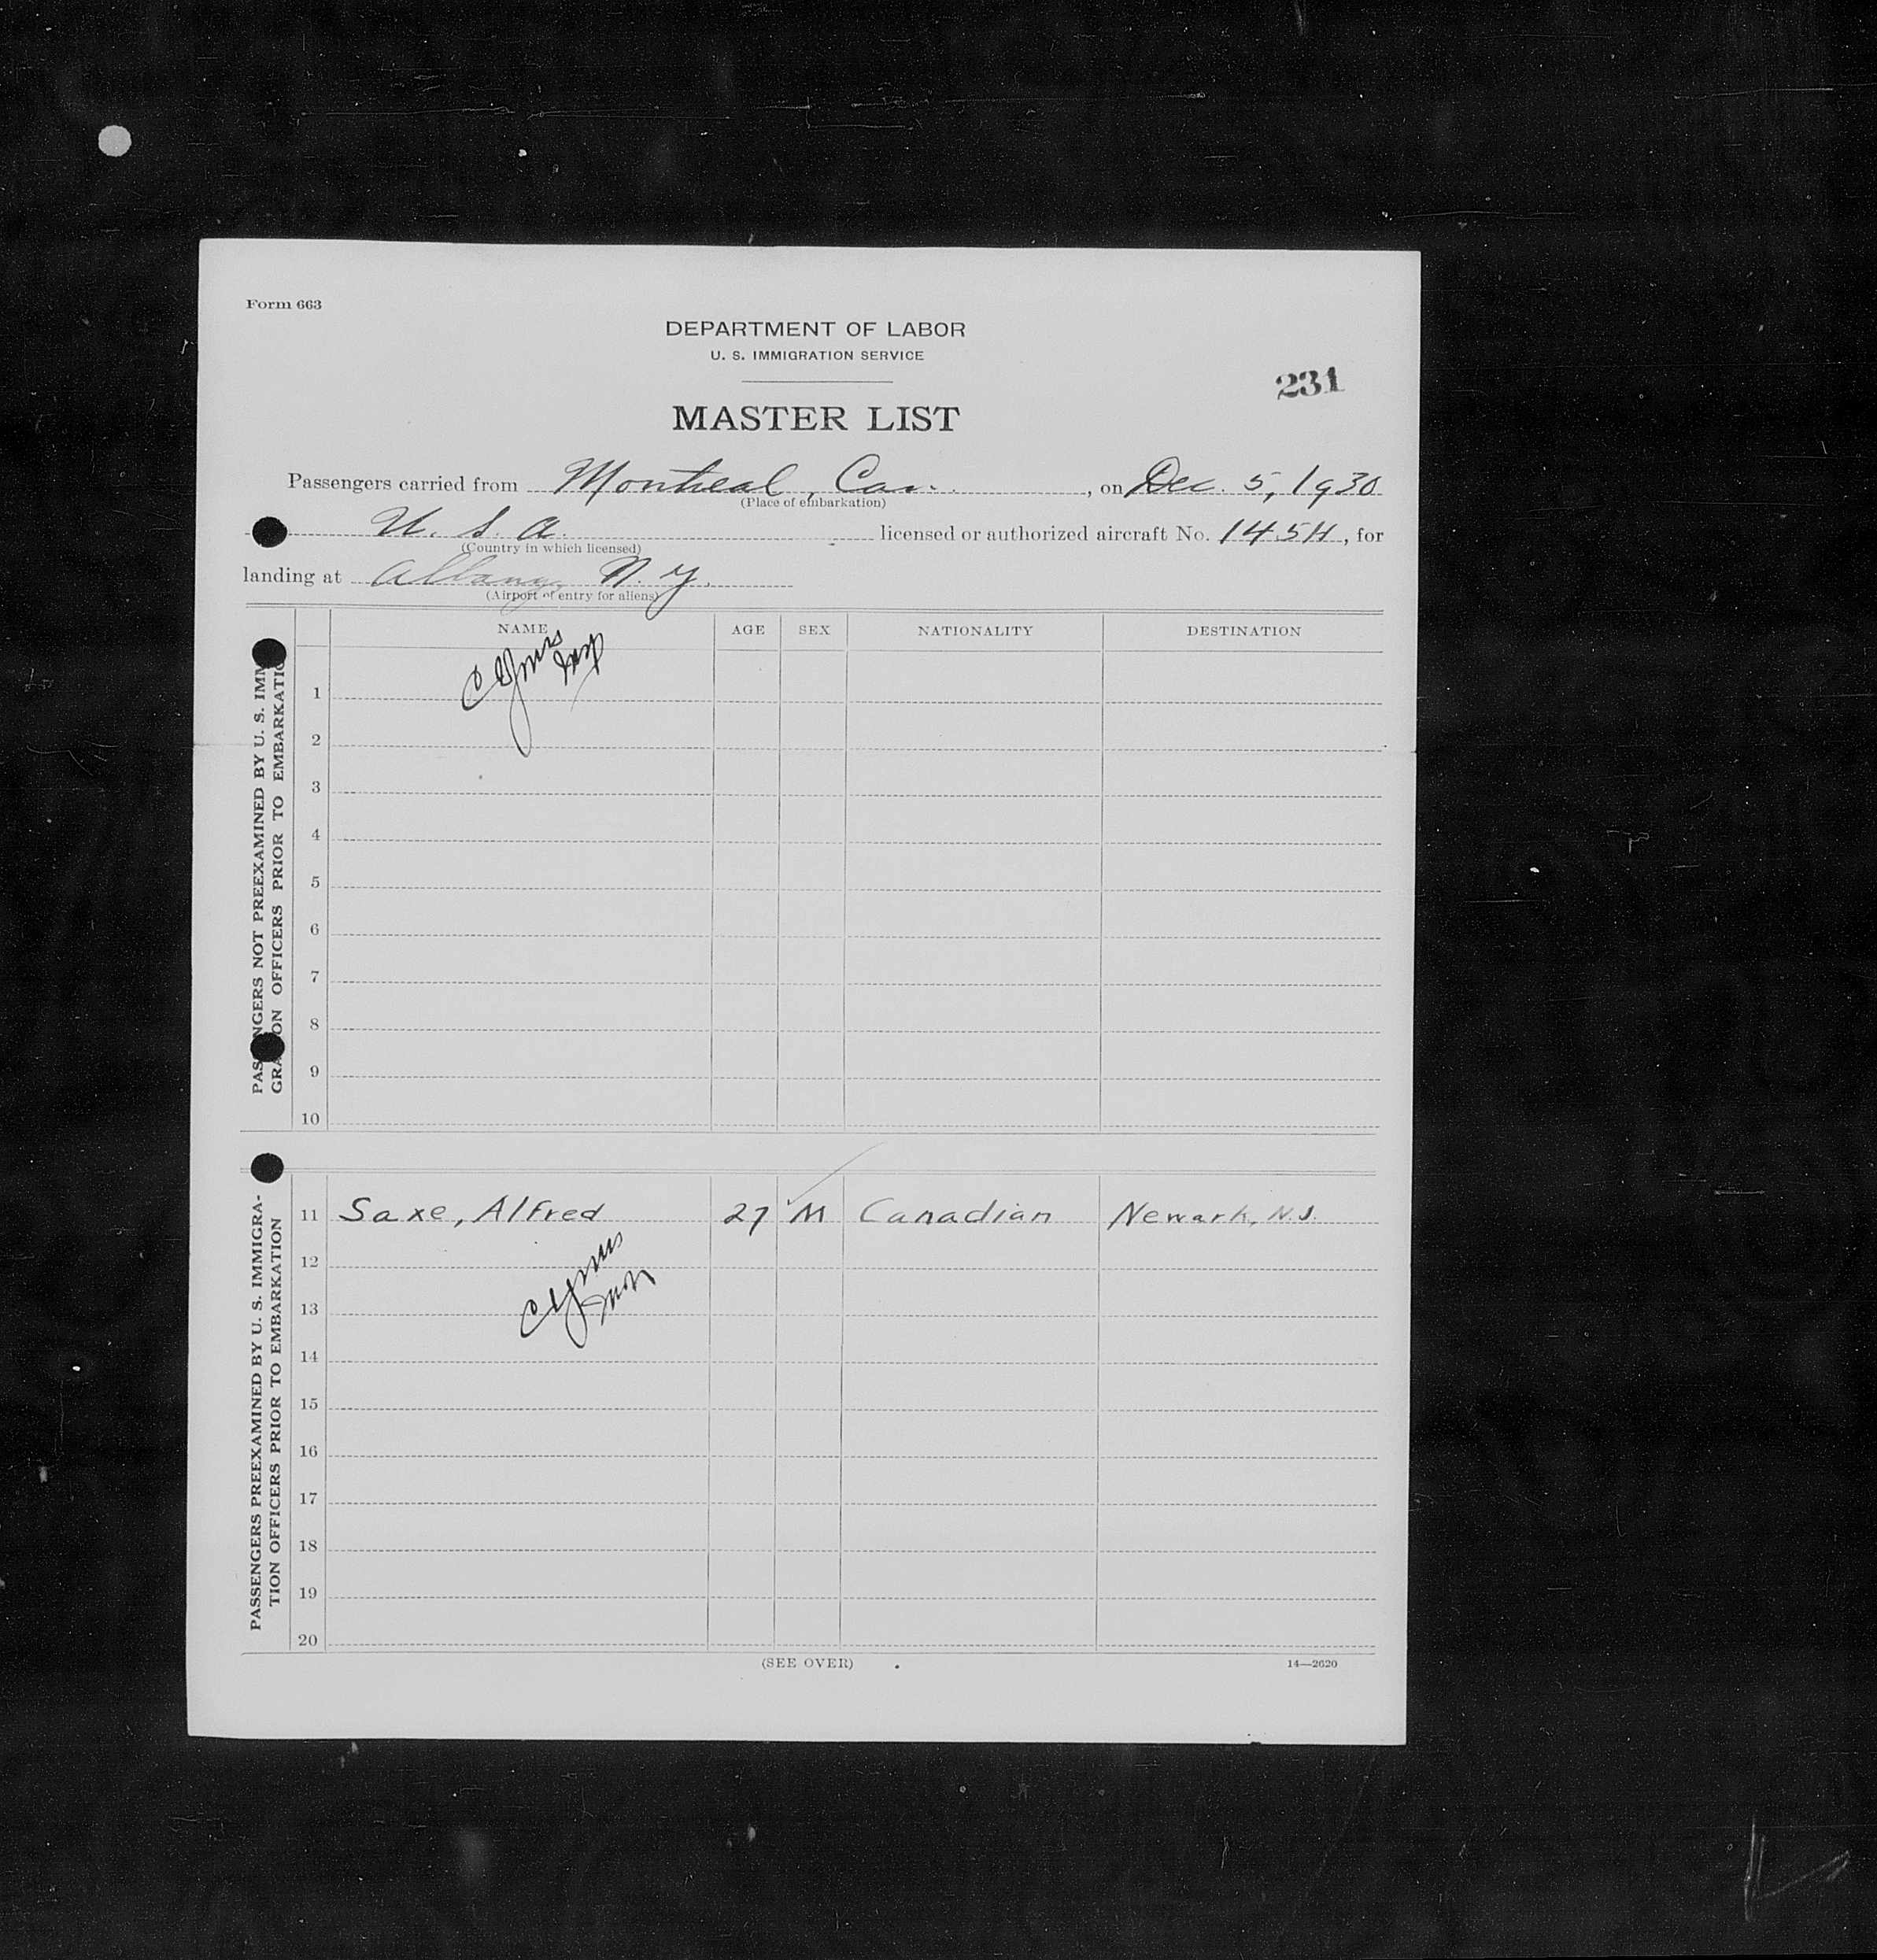 Form 663
DEPARTMENT OF LABOR
U. S. IMMIGRATION SERVICE
231
MASTER LIST
Passengers carried from Montreal, Can. , on Dec. 5, 1930
(Place of embarkation)
U. S. A. licensed or authorized aircraft No. 145H, for
(Country in which licensed)
landing at Albany, N. Y.
(Airport of entry for aliens)
NAME AGE SEX NATIONALITY DESTINATION
PASSENGERS NOT PREEXAMINED BY U. S. IMMI
GRATION OFFICERS PRIOR TO EMBARKATION
1
2
3
4
5
6
7
8
9
10
PASSENGERS PREEXAMINED BY U. S. IMMIGRA-
TION OFFICERS PRIOR TO EMBARKATION
11 Saxe, Alfred 27 M Canadian Newark, N.J.
12
13
14
15
16
17
18
19
20
(SEE OVER) 14—2620